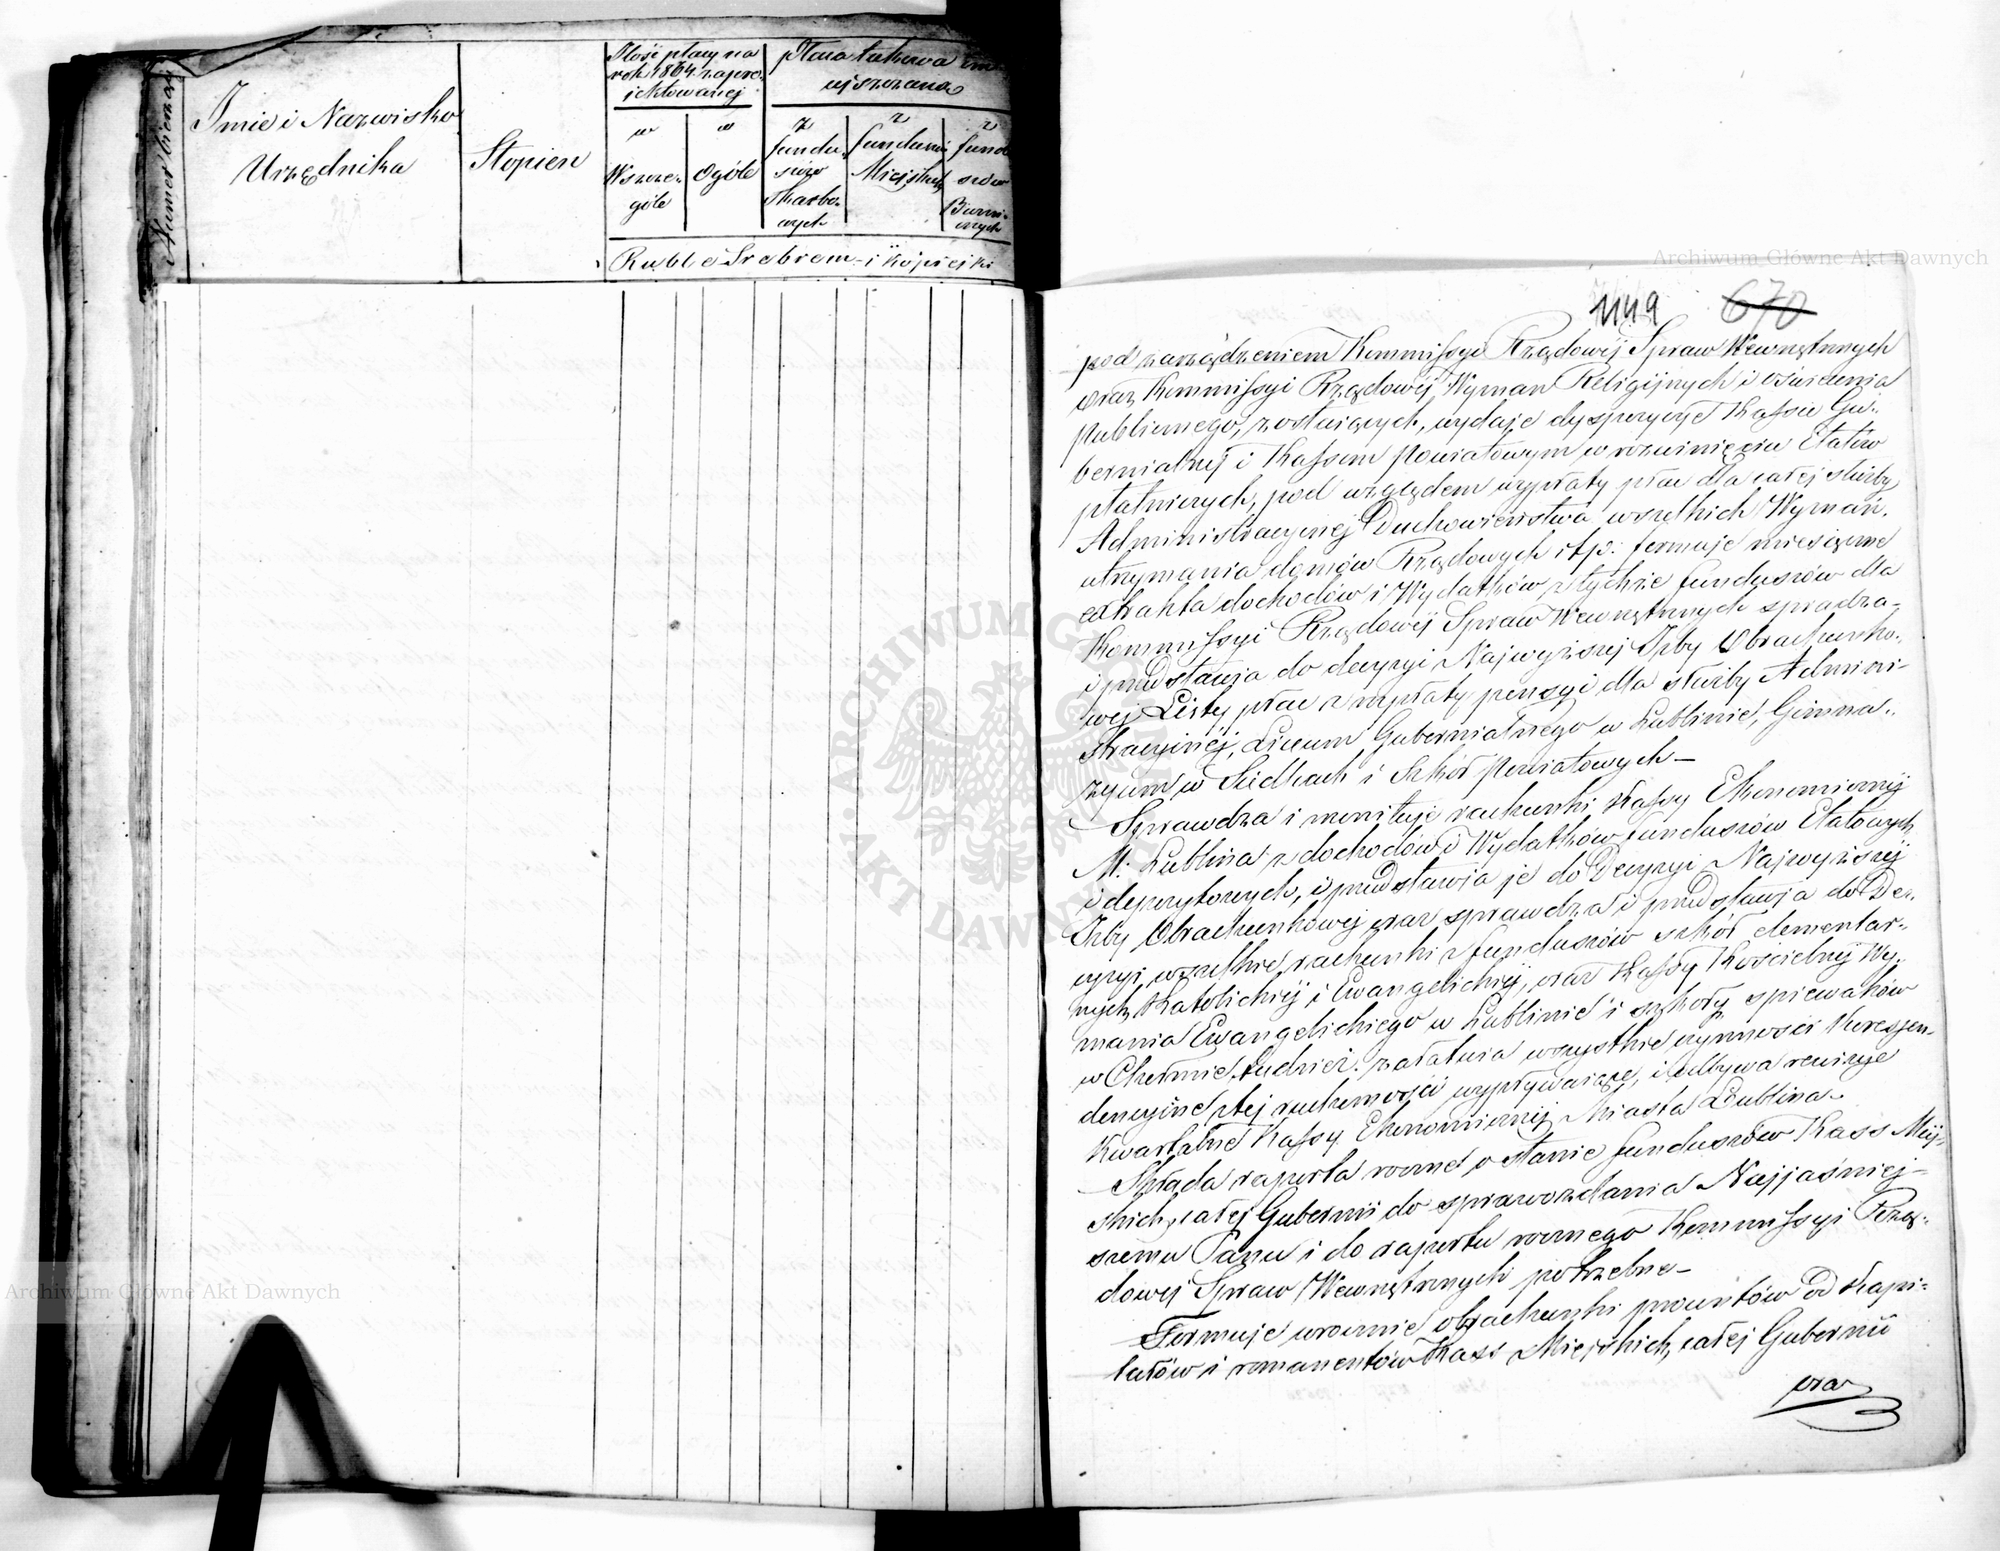 Numer bieżący
Imie i Nazwisko
Urzędnika
Stopien
Ilość płacy na
rok 1864 zapro-
jektowanej
w
Wszcze-
góle
w
Ogóle
Płaca takowa
uiszczana
z
fundu-
szów
Skarbo-
wych
z
funduszów
Miejskich
z
fundu
szów
Ruble Srebrem i kopiejki
1149 670
pod zarządzeniem Kommissyi Rządowéj Spraw Wewnętrznych
oraz Kommissyi Rządowéj Wyznań Religijnych i oświecenia
Publicznego, zostających, wydaje dyspozycye Kassie Gu-
bernialnéj i Kassom Powiatowym w rozwinięciu Etatów
płatniczych, pod względem wypłaty płac dla całej służby
Administracyjnej Duchowieństwa wszelkich Wyznań,
utrzymania domów Rządowych itp: formuje miesięczne
extrakta dochodów i Wydatków z tychże funduszów dla
Kommissyi Rządowéj Spraw Wewnętrznych sprawdza
i przedstawia do decyzyi Najwyższej Izby Obrachunko-
wej Listy płac z wypłaty pensyi dla służby Admini-
stracyjnéj, Liceum Gubernialnego w Lublinie, Gimna-
zyum w Siedlcach i Szkół Powiatowych –
Sprawdza i monituje rachunki Kassy Ekonomicznéj
M. Lublina z dochodów i Wydatków funduszów Etatowych
i depozytowych, i przedstawia je do Decyzyi Najwyższéj
Izby Obrachunkowej oraz sprawdza i przedstawia do De-
cyzyi, wszelkie rachunki z funduszów szkół elementar-
nych Katolickiéj i Ewangelickiéj, oraz Kassy Kościelnéj Wy-
znania Ewangelickiego w Lublinie i szkoły spiewaków
w Chełmie, tudzież załatwia wszystkie czynności Korespon-
dencyjne z tej ruchomości wypływające, i odbywa rewizye
Kwartalne Kassy Ekonomicznéj Miasta Lublina –
Składa raporta roczne o stanie funduszów Kass Miej-
skich całej Gubernii do sprawozdania Najjaśniej-
szemu Panu i do raportu rocznego Kommissyi Rzą-
dowej Spraw Wewnętrznych potrzebne –
Formuje corocznie obrachunki procentów od Kapi-
tałów i remanentów Kass Miejskich całej Gubernii
oraz
Archiwum Główne Akt Dawnych
ARCHIWUM GŁÓWNE AKT DAWNYCH
Archiwum Główne Akt Dawnych